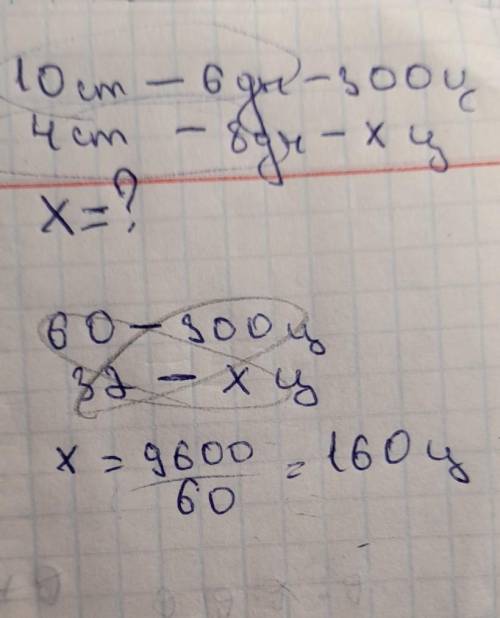 10 ст - 6 дн - 300 ц
4 ст - 8 дн - х ц
х = ?
60 - 300 ц
32 - х ц
х = 9600/60 = 160 ц